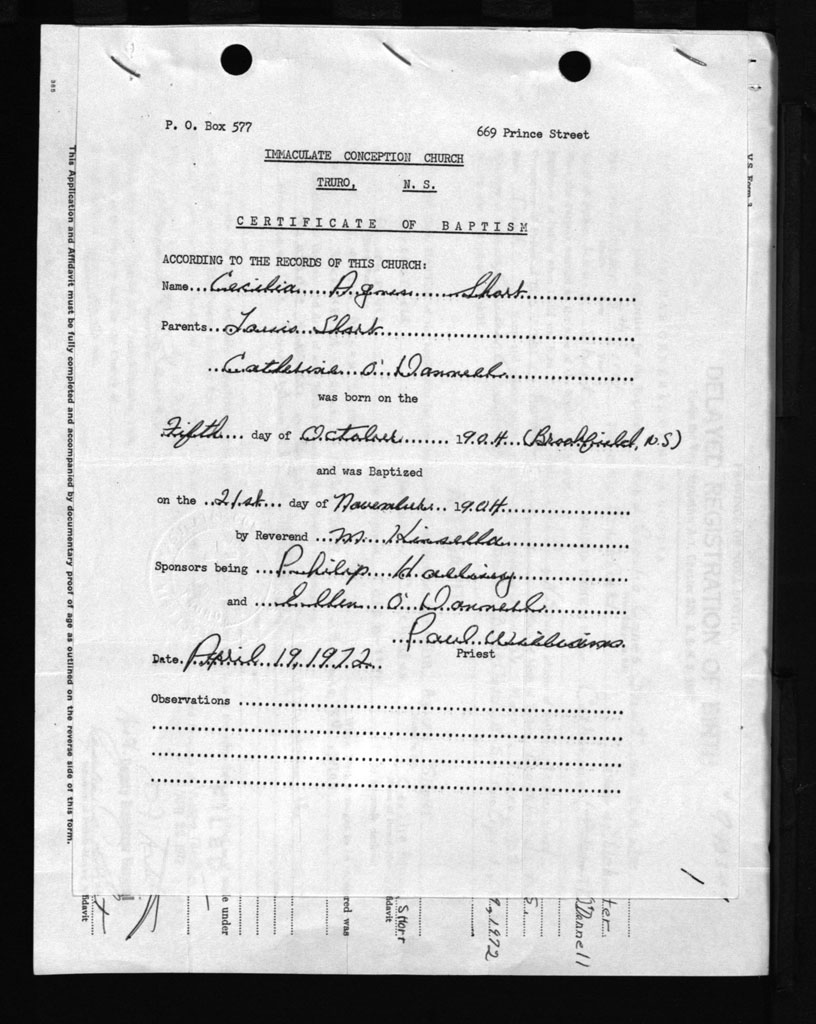 P. O. Box 577 669 Prince Street
IMMACULATE CONCEPTION CHURCH
TRURO, N. S.
CERTIFICATE OF BAPTISM
ACCORDING TO THE RECORDS OF THIS CHURCH:
Name... Cecilia Agnes Short
Parents... Louis Short
Catherine O'Donnell
was born on the
Fifth day of October 1904 (Brookfield, N.S)
and was Baptized
on the 21st day of November 1904
by Reverend M. Kinsella
Sponsors being Philip
and Ellen O'Donnell
Paul Williams
Priest
Date. April 19, 1972
Observations
This Application and Affidavit must be fully completed and accompanied by documentary proof of age as outlined on the reverse side of this form.
DELAYED REGISTRATION OF BIRTH
fidavit
le under
red was
Short
fidavit
9, 1972
ter
O'Donnell